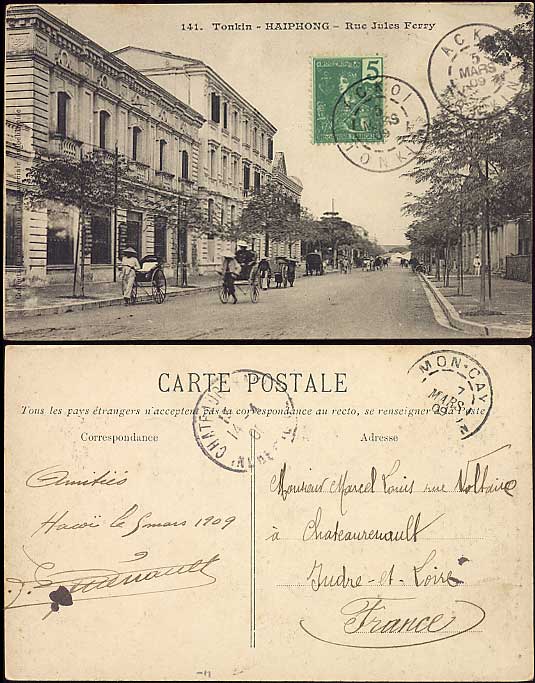 141. Tonkin - HAIPHONG - Rue Jules Ferry
5
HACKOI
5
MARS
09
TONKIN
CARTE POSTALE
Tous les pays étrangers n'acceptent pas la correspondance au recto, se renseigner à la Poste
MON-CAY
7
MARS
09
TONKIN
Correspondance
Adresse
Amitiés
Hacoï le 5 mars 1909
Monsieur Marcel Louis rue Voltaire
à Chateaurenault
Indre-et-Loire
France